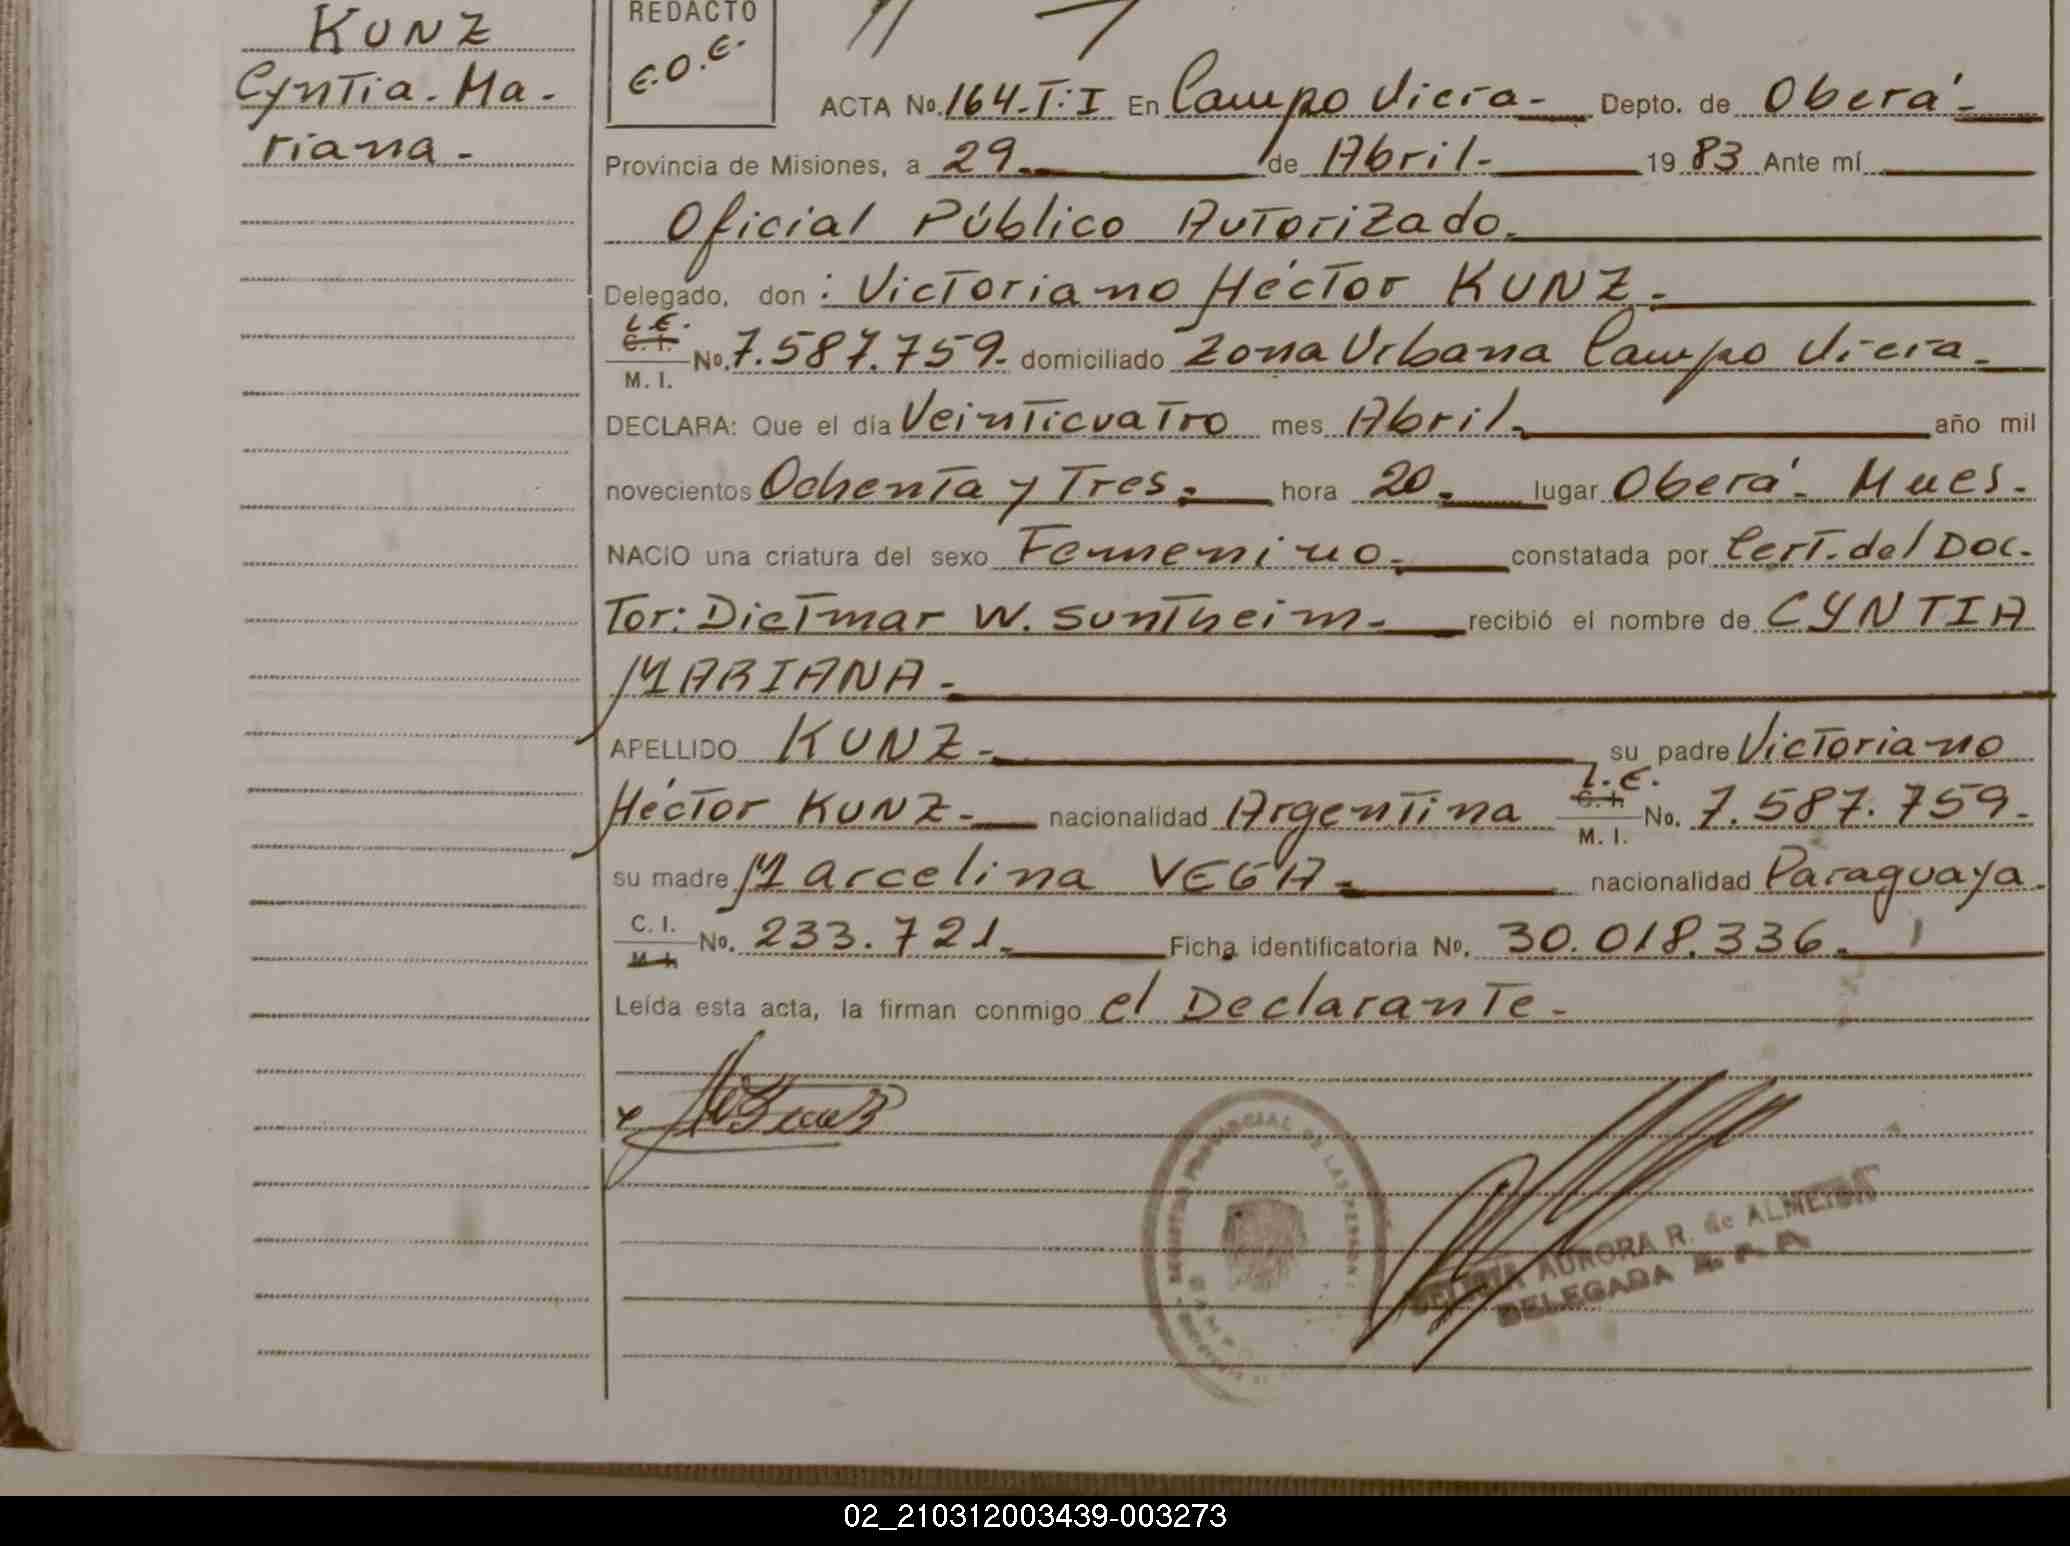 KUNZ
Cyntia. Ma-
riana.-
REDACTO
E.O.E.
ACTA No. 164-T:I En Campo Viera.- Depto. de Oberá.-
Provincia de Misiones, a 29.- de Abril.- 19 83 Ante mí
Oficial Público Autorizado.
Delegado, don: Victoriano Héctor KUNZ.-
L.E.
C. I.
M. I.
No. 7.587.759.- domiciliado Zona Urbana Campo Viera.-
DECLARA: Que el día Veinticuatro mes Abril.- año mil
novecientos Ochenta y Tres.- hora 20.- lugar Oberá.
NACIO una criatura del sexo Femenino.- constatada por Cert. del Doc-
tor: Dietmar W. Suntheim.- recibió el nombre de CYNTIA
MARIANA.-
APELLIDO KUNZ.- su padre Victoriano
Héctor KUNZ.- nacionalidad Argentina L.E. C. I. M. I. No. 7.587.759.-
su madre Marcelina VEGA.- nacionalidad Paraguaya.
C. I. M. I. No. 233.721.- Ficha identificatoria No. 30.018.336.-
Leída esta acta, la firman conmigo el Declarante.-
AURORA R. de ALMEIDA
DELEGADA
02_210312003439-003273